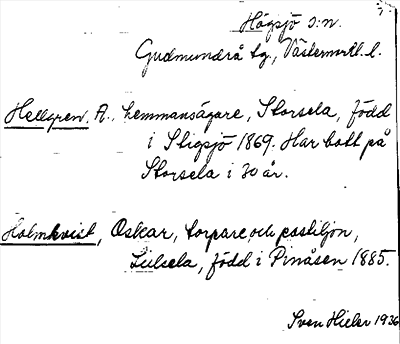 Högsjö s:n.
Gudmundrå tg., Västernorrl. l.
Hellgren, A., hemmansägare, Storsela, född
i Stigsjö 1869. Har bott på
Storsela i 30 år.
Holmkvist, Oskar, torpare och postiljon,
Lillsela, född i Pinåsen 1885.
Sven Hieler 1936